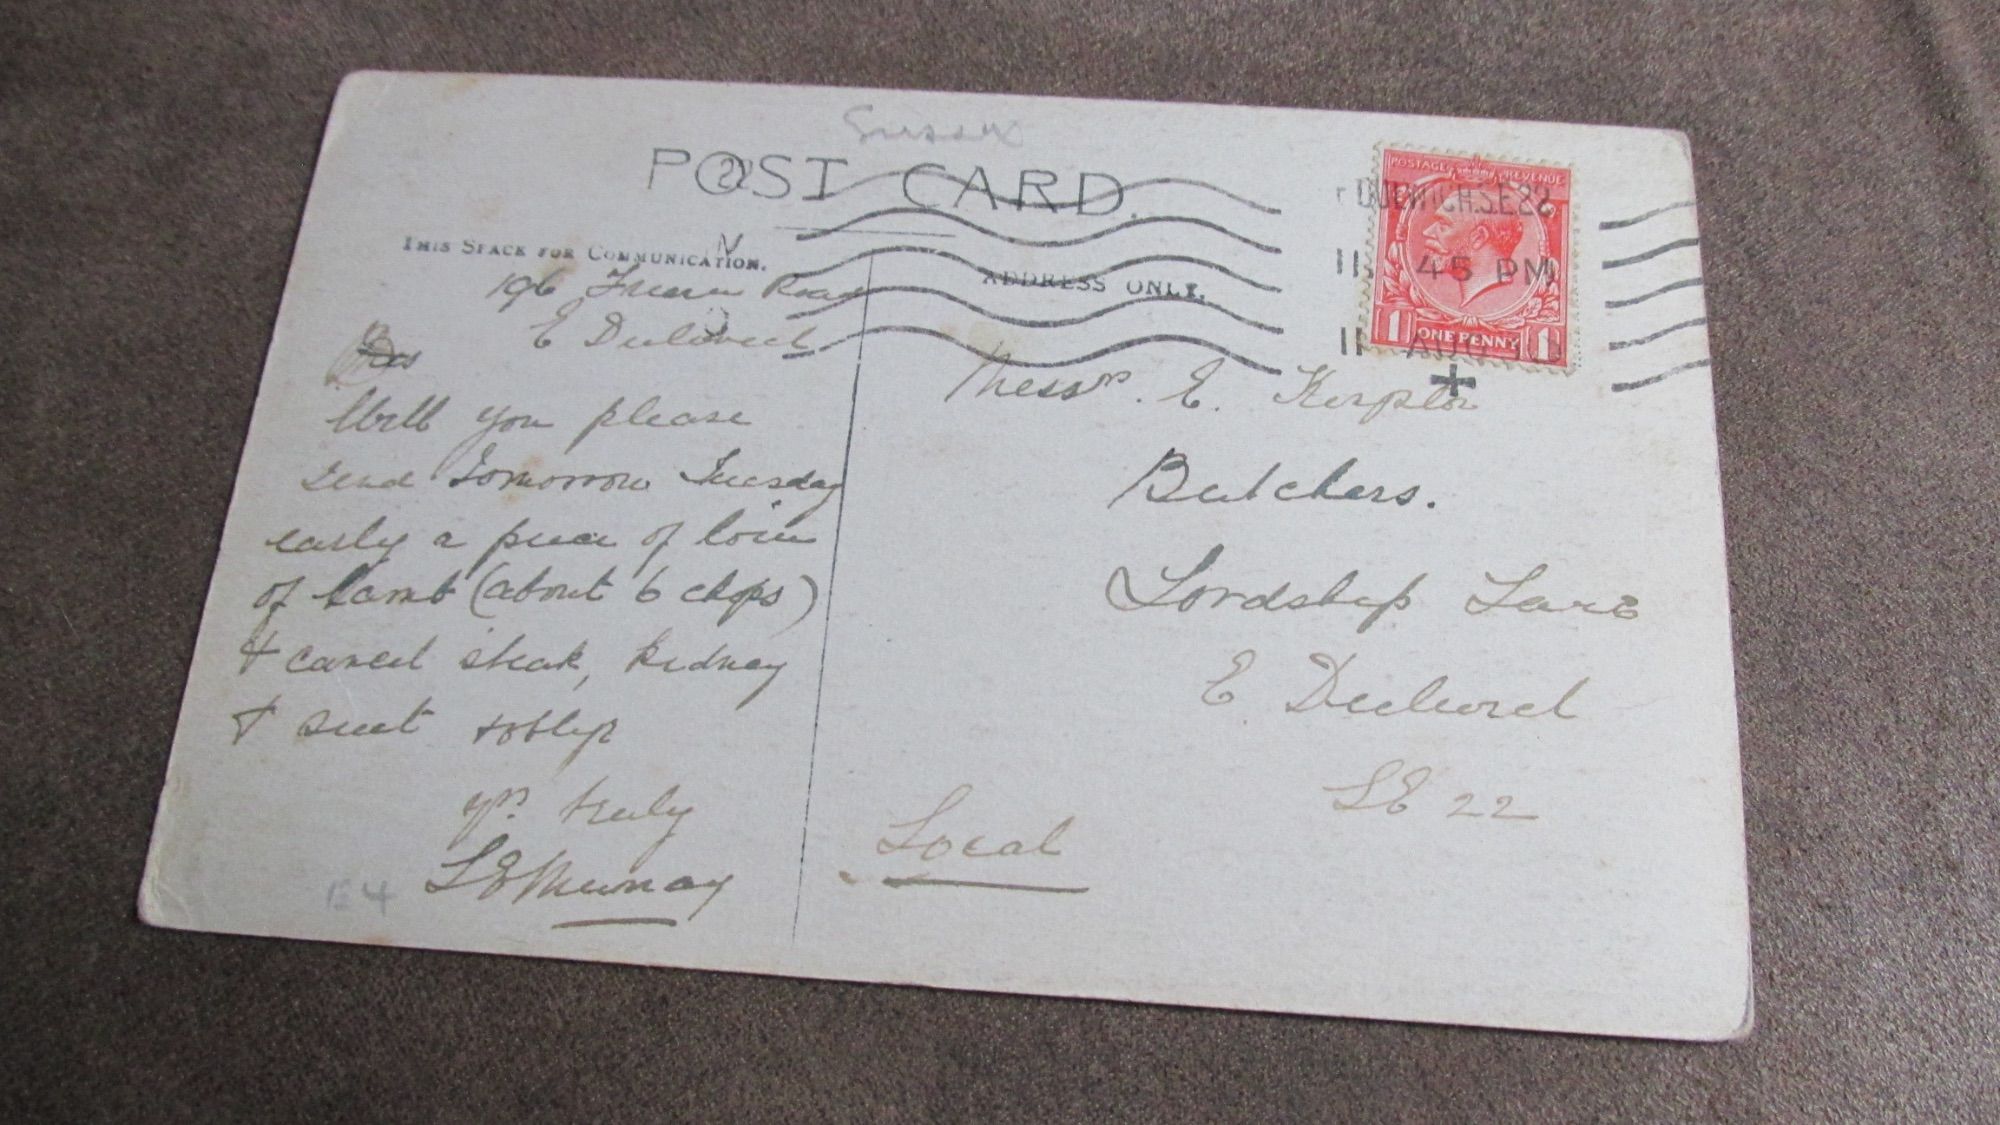 Sussex
POST CARD.
22
THIS SPACE FOR COMMUNICATION.
ADDRESS ONLY.
POSTAGE REVENUE
1 ONE PENNY 1
DULWICH.S.E22
11 45 PM
11 AUG
196 Road
E Dulwich
Will you please
send tomorrow Tuesday
early a piece of loin
of lamb (about 6 chops)
& cancel steak, kidney
& suet
yrs truly
L E Murray
E4
Messrs. E.
Butchers.
Lordship Lane
E Dulwich
SE 22
Local